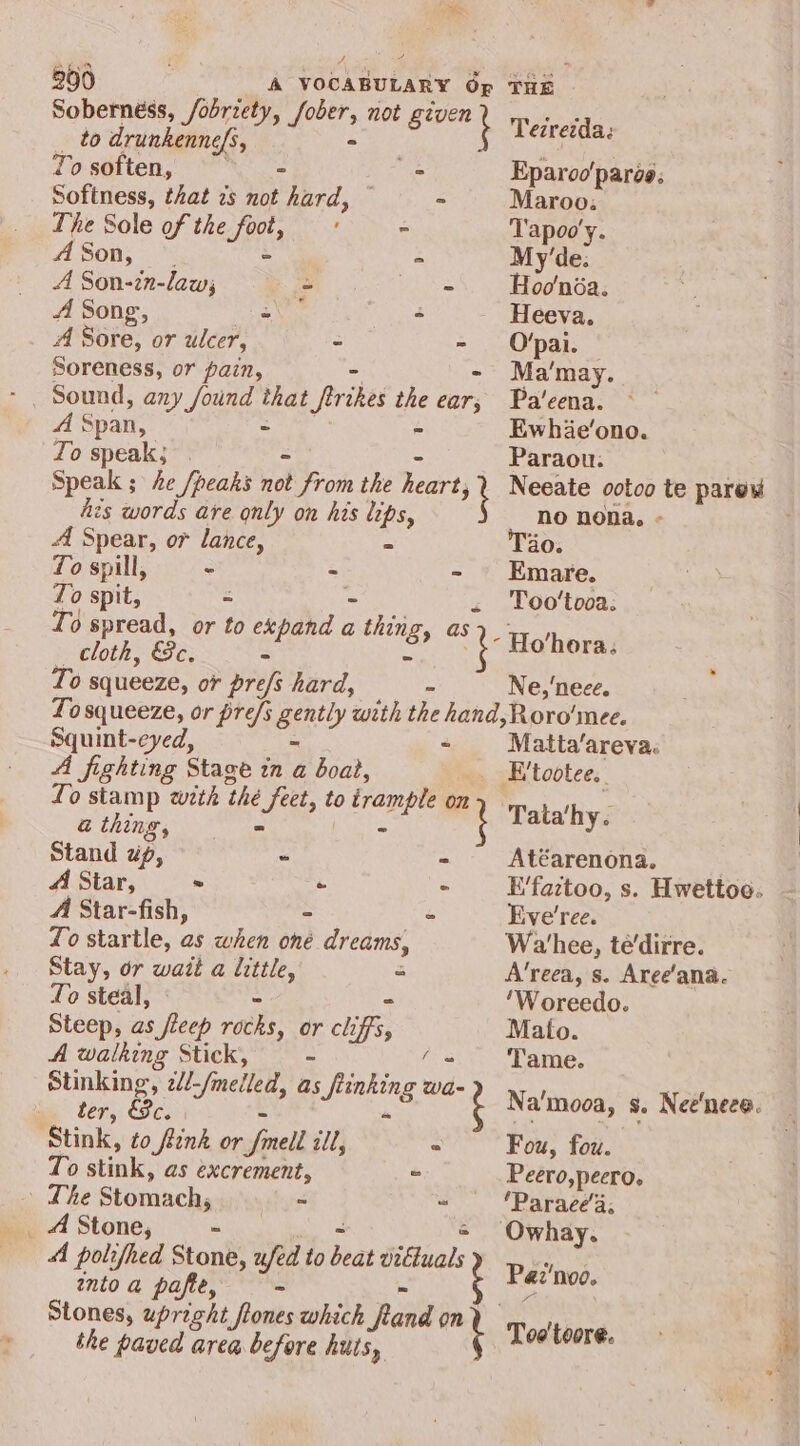 290 A VOCABULARY OF THE
Soberness, ſobriety, ſober, not given } Teireida.
to drunkenneſs, -
To soften, - - Eparoo'paroo.
Softness, that is not hard, - Maroo.
The Sole of the foot, - Tapoo'y.
A Son, - - My'de.
A Son-in-law, - - Hoo'nöa.
A Song, - - Heeva.
A Sore, or ulcer, - - O'pai.
Soreness, or pain, - - Ma'may.
Sound, any ſound that ſtrikes the ear, Pa'eena.
A Span, - - Ewhäe'ono.
To speak, - - Paraou.
Speak ; he ſpeaks not from the heart, } Neeate ootoo te parou
his words are only on his lips, no nona.
A Spear, or lance, - Täo.
To spill, - - - Emare.
To spit, - - - Too'tooa.
To spread, or to expand a thing, as } Ho'hora.
cloth, &c. - -
To squeeze, or preſs hard, - Ne,'neee.
To squeeze, or preſs gently with the hand, Roro'mee.
Squint-eyed, - - Matta'areva.
A fighting Stage in a boat, E'tootee.
To stamp with the feet, to trample on } Tata'hy.
a thing, - -
Stand up, - - Atëarenona.
A Star, - - - E'faitoo, s. Hwettoo.
A Star-fish, - - Eve'ree.
To startle, as when one dreams, Wa'hee, te'dirre.
Stay, or wait a little, - A'reea, s. Aree'ana.
To steal, - - 'Woreedo.
Steep, as ſteep rocks, or cliffs, Mato.
A walking Stick, - - Tame.
Stinking, ill-ſmelled, as ſtinking wa- } Na'mooa, s. Nee'neeo.
ter, &c. - -
Stink, to ſtink or ſmell ill, - Fou, fou.
To stink, as excrement, - Peero,peero.
The Stomach, - - 'Paraee'ä.
A Stone, - - - Owhay.
A poliſhed Stone, uſed to beat victuals } Pai'noo.
into a paſte, - -
Stones, upright ſtones which ſtand on } Too'toore.
the paved area before huts,